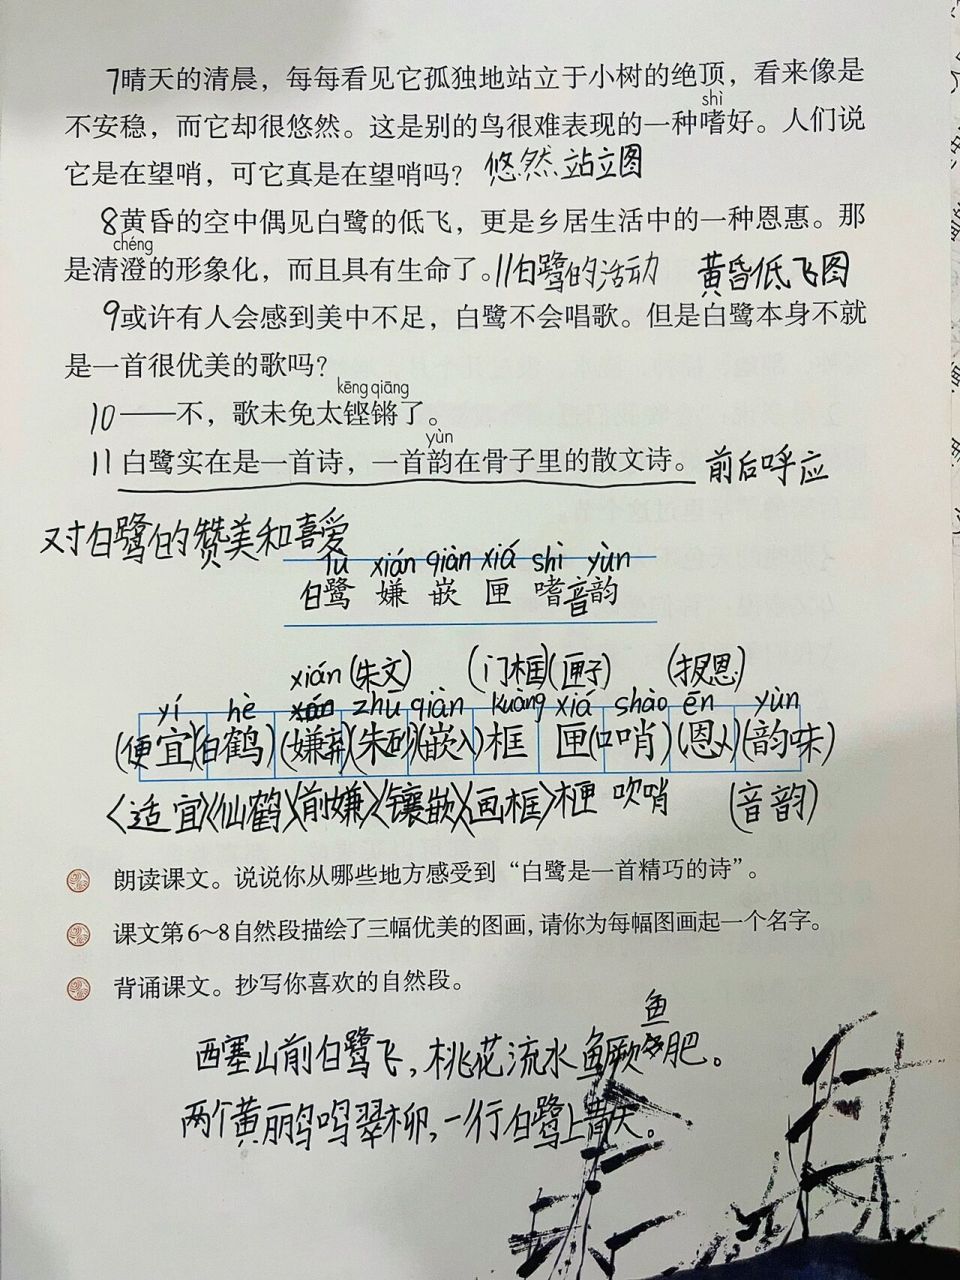 7晴天的清晨，每每看见它孤独地站立于小树的绝顶，看来像是
shì
不安稳，而它却很悠然。这是别的鸟很难表现的一种嗜好。人们说
它是在望哨，可它真是在望哨吗？ 悠然站立图
8黄昏的空中偶见白鹭的低飞，更是乡居生活中的一种恩惠。那
chéng
是清澄的形象化，而且具有生命了。11白鹭的活动 黄昏低飞图
9或许有人会感到美中不足，白鹭不会唱歌。但是白鹭本身不就
是一首很优美的歌吗？
kēng qiāng
10——不，歌未免太铿锵了。
yùn
11白鹭实在是一首诗，一首韵在骨子里的散文诗。 前后呼应
对白鹭的赞美和喜爱
lù xián qiàn xiá shì yùn
白鹭 嫌 嵌 匣 嗜 音韵
xián (朱文) (门框)(匣子) (报恩)
yí hè zhū qiàn kuàng xiá shào ēn yùn
(便宜)(白鹤)(嫌弃)(朱砂)(嵌入)框 匣(口哨)(恩人)(韵味)
<适宜><仙鹤><前嫌><镶嵌><画框>木匣 吹哨 (音韵)
朗读课文。说说你从哪些地方感受到“白鹭是一首精巧的诗”。
课文第6～8自然段描绘了三幅优美的图画，请你为每幅图画起一个名字。
背诵课文。抄写你喜欢的自然段。
鱼
西塞山前白鹭飞，桃花流水鳜肥。
两个黄鹂鸣翠柳，一行白鹭上青天。